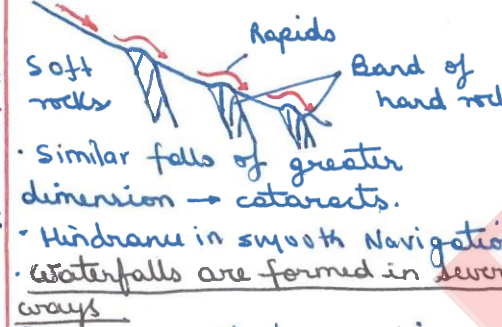 Rapids
Soft
rocks
Band of
hard rock
· Similar falls of greater
dimension → cataracts.
· Hindrance in smooth Navigatio
· Waterfalls are formed in sever
ways